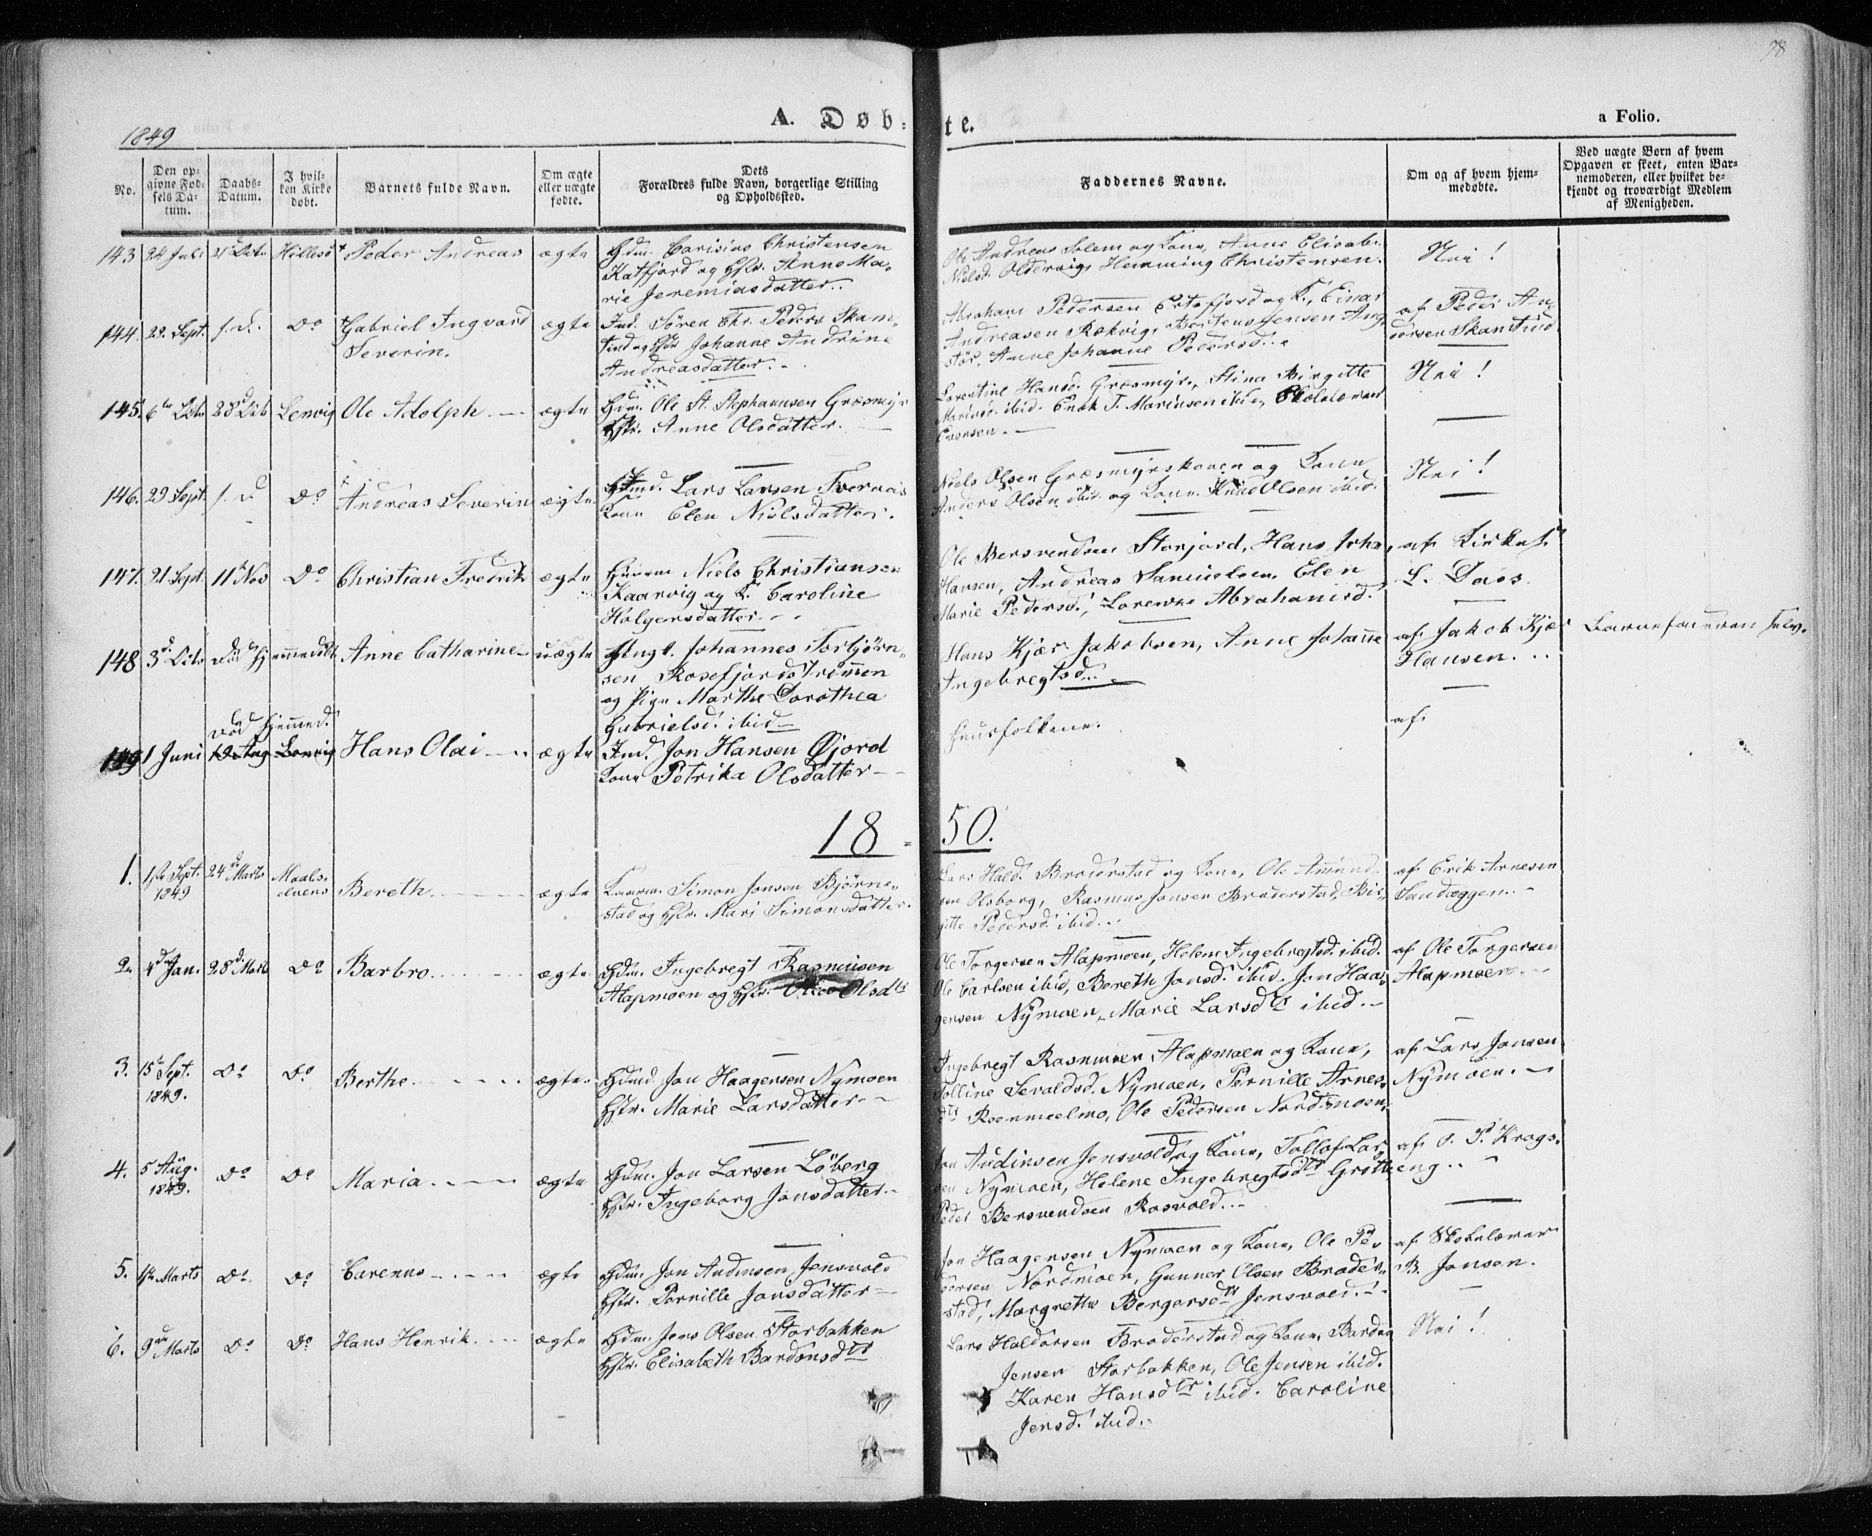 98
1849
A. Døb-
te.
a Folio.
No.
Den op-
givne Fød-
sels Da-
tum.
Daabs-
Datum.
I hvil-
ken Kirke
døbt.
Barnets fulde Navn.
Om ægte
eller uægte
fødte.
Dets
Forældres fulde Navn, borgerlige Stilling
og Opholdsted.
Faddernes Navne.
Om og af hvem hjem-
medøbte.
Ved uægte Børn af hvem
Opgaven er skeet, enten Bar-
nemoderen, eller hvilket be-
kjendt og troværdigt Medlem
af Menigheden.
143 24 Juli Hillesø Peder Andreas ægte
Christensen
og Hstr. Anne Ma-
rie Jeremiasdatter.
Ole Andreas Solem og Kone, Anne Elisab.
Nielsd. Oldervig, Hemming Christensen.
Nei!
144. 29. Sept. s. D. Do Gabriel Ingvard
Severin.
ægte
Ind. Sören Chr. Peders Skam-
tind og Hstr Johanne Andrine
Andreasdatter.
Abraham Pedersen og K., Einar
Andreasen Rekvig, Jensen
Anne Johanne Pedersd.
af Peder An-
dersen Skamtind
145. 6te 28d Lenvig Ole Adolph ægte
Hdm. Ole St. Stephansen Græsmyr
Hstr. Anne Olsdatter.
Lorentine Hansd. Græsmyr, Stina Birgitte
Mariusd. ibid. Enok T. Mariusen ibid.
Evensen.
Nei!
146. 29 Sept. s. D Do Andreas Severin ægte
Lars Larsen Tvernæs
Kone Elen Nielsdatter.
Niels Olsen Græsmyrskoven og Kone
Anders Olsen ibid. og Kone. Knud Olsen ibid.
Nei!
147. 21 Sept. 11te Nov Do Christian Fredrik ægte
Niels Christiansen
Kaarvig og K. Caroline
Holgersdatter
Ole Bersvendsen Storjord, Hans Joh.
Hansen, Andreas Samuelsen, Elen
Marie Pedersd., Lorentse Abrahamsd.
af Kirkes.
L. Daos.
148 3d Anne Catharine uægte
Ungk. Johannes Torbjørn-
sen Rosefjordstrømmen
og Pige Marthe Dorothea
Gabrielsd. ibid
Hans Kjær Jakobsen, Anne Johanne
Ingebregtsd.
af Jakob Kjær
Hansen.
Barnefaderen selv.
Død hjemmed.
149 1 Juni Lenvig Hans Olai ægte
Ind. Jon Hansen Øjord
Kone Petrika Olsdatter
Huusfolkene.
af
18 - 50.
1. Sept.
1849
24d Marts Maals-
elvens
Bereth ægte
Simon Jonsen Bjørne-
stad og Hstr. Mari Simonsdatter.
Lars Hald. Broderstad og Kone, Ole Amund-
sen Olsborg, Rasmus Jonsen Broderstad, Bir-
gitte Pedersd. ibid.
af Erik Arnesen
Sandeggen.
2. 4d Jan. 28d Marts Do Barbro ægte
Hdm. Ingebregt Rasmusen
Alapmoen og Hstr. Olsdtr
Ole Torgersen Alapmoen, Helene Ingebregtsd. ibid.
Ole Carlsen ibid, Bereth Jonsd. ibid. Jon Haa-
gensen Nymoen, Marie Larsdtr ibid.
af Ole Torgersen
Alapmoen.
3. 15de Sept.
1849.
Do Do Berthe ægte
Hdmd. Jon Haagensen Nymoen
Hstr. Marie Larsdatter
Ingebregt Rasmusen, Alapmoen og Kone,
Olline Sevaldsd. Nymoen, Pernille Arnes-
dtr Ole Pedersen Nordmoen.
af Lars Jonsen
Nymoen.
4. 5 Aug.
1849.
Do Do Maria ægte
Hdm. Jon Larsen Løberg
Hstr. Ingeborg Jonsdatter
Jon Audinsen Jensvold og Kone, Tollof Lar-
sen Nymoen, Helene Ingebregtsdtr
Peder Bersvendsen Rosvold.
af P. Krogs-
eng.
5. Marts Do Do Carenus ægte
Hdm. Jon Audinsen Jensvold
Hstr. Pernille Jonsdatter
Jon Haagensen Nymoen og Kone, Ole Pe-
dersen Nordmoen, Gunner Olsen Broder-
stad, Margrethe Bergersdtr Jensvold.
af Skolelærer
B. Jonsen.
6. 9de Marts Do Do Hans Henrik ægte
Hdm. Jens Olsen Storbakken
Hstr. Elisabeth Bardonsdtr
Lars Haldorsen Broderstad og Kone, Bardon
Jensen Storbakken, Ole Jensen ibid.
Karen Hansdtr ibid. Caroline
Jensd. ibid.
Nei!